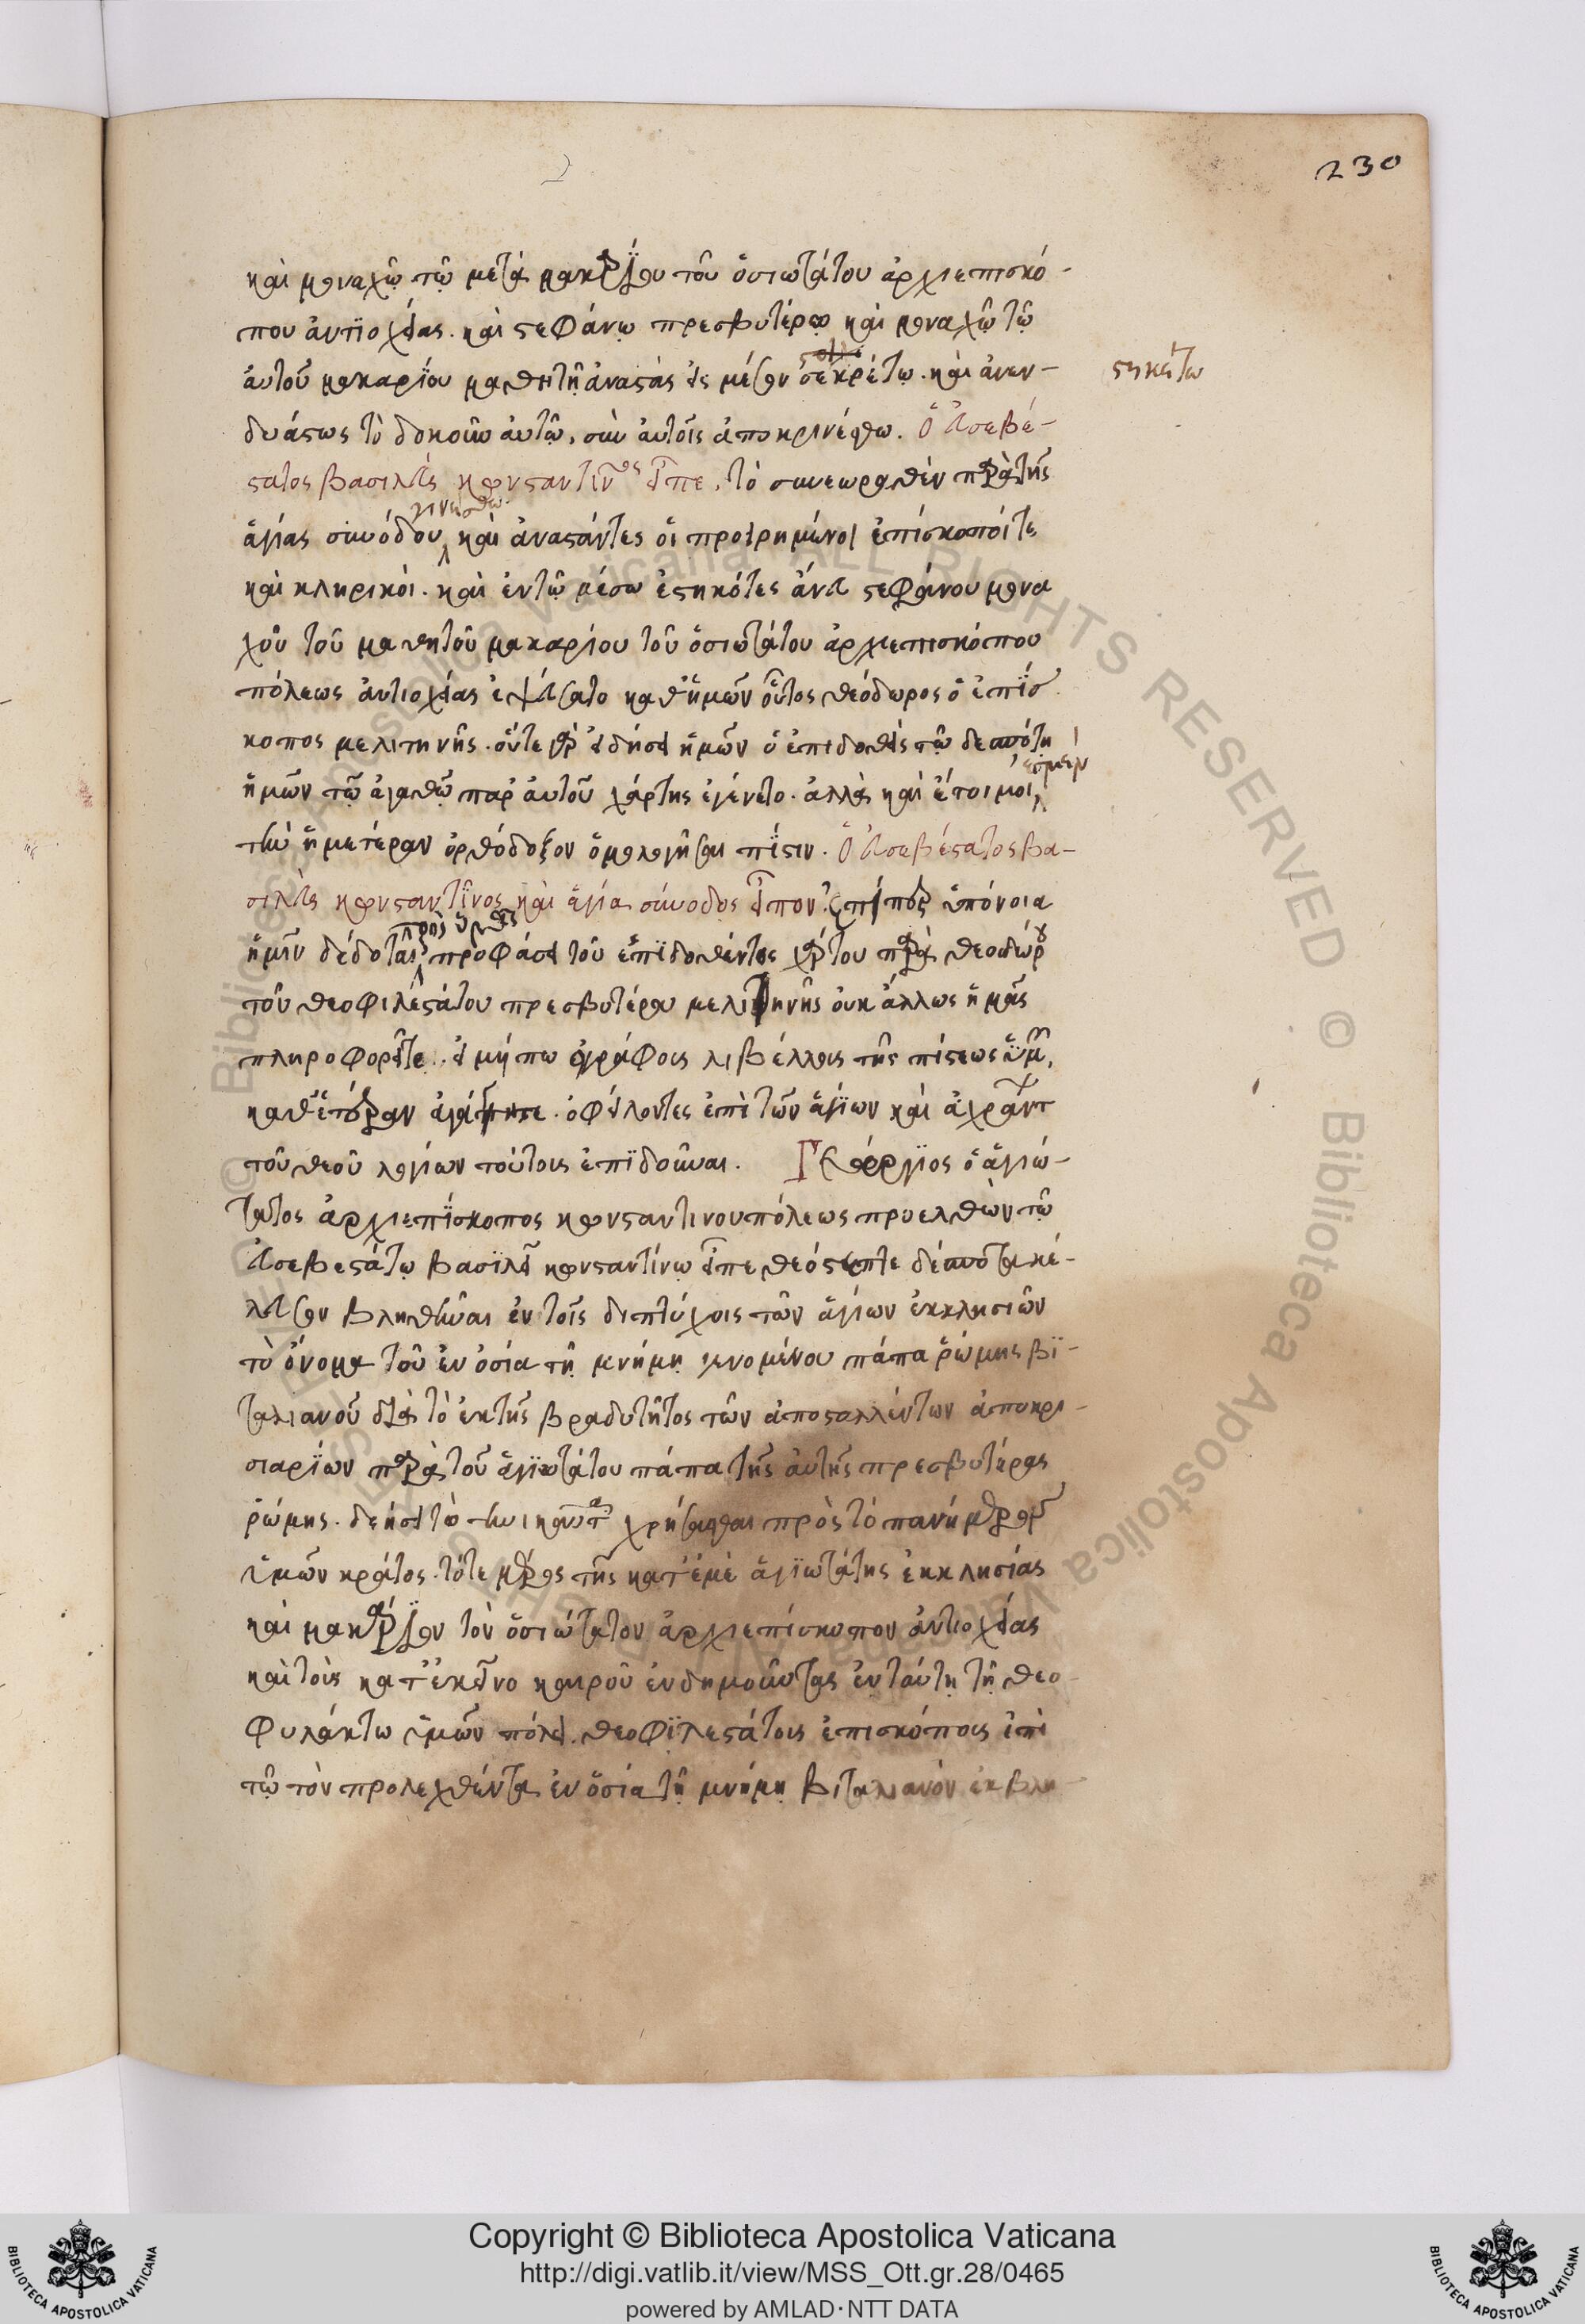 230
καὶ μοναχῷ τῷ μετὰ μακαρίου τοῦ ὁσιωτάτου ἀρχιεπισκό-
που ἀντιοχείας. καὶ στεφάνῳ πρεσβυτέρῳ καὶ μοναχῷ τῷ
αὐτοῦ μακαρίου μαθητῇ ἀναστὰς εἰς μέσον σεκρέτῳ. καὶ ἀνεν-
στηκέτω
δυάστως τὸ δοκοῦν αὐτῷ, σὺν αὐτοῖς ἀποκρινέσθω. ὁ εὐσεβέ-
στατος βασιλεὺς κωνσταντῖνος εἶπε, τὸ συνεωραθὲν παρὰ τῆς
γινέσθω
ἁγίας συνόδου, καὶ ἀναστάντες οἱ προειρημένοι ἐπίσκοποί τε
καὶ κληρικοὶ. καὶ ἐν τῷ μέσω ἑστηκότες ἄνευ στεφάνου μονα
χοῦ τοῦ μαθητοῦ μακαρίου τοῦ ὁσιωτάτου ἀρχιεπισκόπου
πόλεως ἀντιοχείας ἐψεύσατο καθ' ἡμῶν οὗτος θεόδωρος ὁ ἐπίσ
κοπος μελιτηνῆς. οὔτε γὰρ εἰδήσει ἡμῶν ὁ ἐπιδοθεὶς τῷ δεσπότῃ
ἐσμὲν
ἡμῶν τῷ ἀγαθῷ παρ' αὐτοῦ χάρτης ἐγένετο. ἀλλὰ καὶ ἕτοιμοι
τὴν ἡμετέραν ὀρθόδοξον ὁμολογῆσαι πίστιν. ὁ εὐσεβέστατος βα-
σιλεὺς κωνσταντῖνος καὶ ἁγία σύνοδος εἶπον. ἐπίπερ ὑπόνοια
πρὸς ὑμᾶς
ἡμῖν δέδοται προφάσει τοῦ ἐπιδοθέντος χάρτου παρὰ θεοδώρου
τοῦ θεοφιλεστάτου πρεσβυτέρου μελιτηνῆς οὐκ ἄλλως ἡμᾶς
πληροφορεῖτε. εἰ μήπω ἐγράφοις λιβέλλοις τῆς πίστεως ὑμῶν,
καθ' ἑτέραν ἀγάπητε. ὀφείλοντες ἐπὶ τῶν ἁγίων καὶ ἀχράντων
τοῦ θεοῦ λογίων τούτους ἐπιδοῦναι. Γεώργιος ὁ ἁγιώ-
τατος ἀρχιεπίσκοπος κωνσταντινουπόλεως προελθὼν τῷ
εὐσεβεστάτῳ βασιλεῖ κωνσταντίνῳ εἶπε θεόστεπτε δέσποτα κέ-
λευσον βληθῆναι ἐν τοῖς διπτύχοις τῶν ἁγίων ἐκκλησιῶν
τὸ ὄνομα τοῦ ἐν ὁσία τῇ μνήμῃ γενομένου πάπα ῥώμης βι-
ταλιανοῦ διὰ τὸ ἐκ τῆς βραδυτῆτος τῶν ἀποσταλέντων ἀποκρι-
σιαρίων παρὰ τοῦ ἁγιωτάτου πάπα τῆς αὐτῆς πρεσβυτέρας
ῥώμης. δεήσει τὸ τηνικαῦτα χρήσασθαι πρὸς τὸ πανήμερον
ὑμῶν κράτος. τότε μέρος τῆς κατ' ἐμὲ ἁγιωτάτης ἐκκλησίας
καὶ μακάριον τὸν ὁσιώτατον ἀρχιεπίσκοπον ἀντιοχείας
καὶ τοὺς κατ' ἐκεῖνο καιροῦ ἐνδημοῦντας ἐν ταύτῃ τῇ θεο
φυλάκτω ὑμῶν πόλει. θεοφιλεστάτους ἐπισκόπους ἐπὶ
τῷ τὸν προλεχθέντα ἐν ὁσία τῇ μνήμῃ βιταλιανὸν ἐκβλη-
© Biblioteca Apostolica Vaticana ALL RIGHTS RESERVED
Copyright © Biblioteca Apostolica Vaticana
http://digi.vatlib.it/view/MSS_Ott.gr.28/0465
powered by AMLAD·NTT DATA
BIBLIOTECA APOSTOLICA VATICANA
BIBLIOTECA APOSTOLICA VATICANA